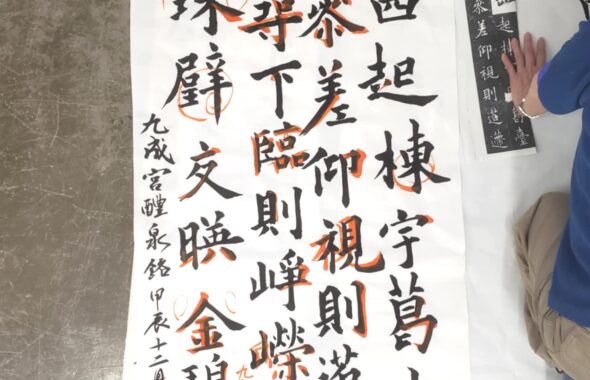 四起棟宇葛
參差仰視則迢
尋下臨則崢嶸
珠璧交暎金碧
九成宮醴泉銘 甲辰十二月
起棟葛臺
參差仰視則迢遰